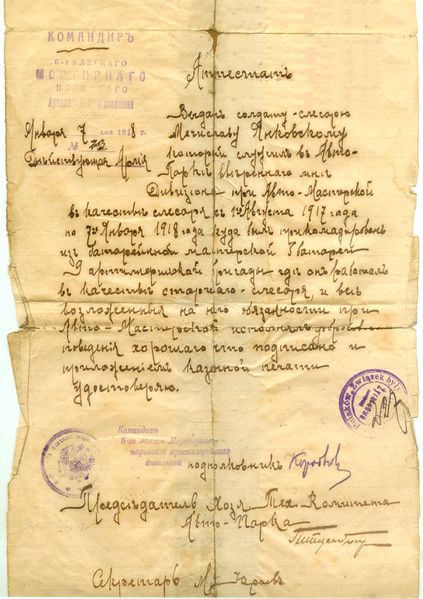 КОМАНДИРЪ
6-го ЛЕГКАГО
МОРТИРНАГО
ПАРКОВАГО
Января 7 дня 1918 г.
№ 73
Дѣйствующая Армія
Аттестатъ
Выданъ солдату-слесарю
Мечиславу Янковскому
который служилъ въ Авто-
Паркѣ ввѣреннаго мнѣ
Дивизіона при Авто-Мастерской
въ качествѣ слесаря съ 1го Августа 1917 года
по 7ое Января 1918 года куда былъ прикомандированъ
изъ батарейной мастерской батареи
9 артиллерійской бригады гдѣ онъ работалъ
въ качествѣ старшаго-слесаря, и всѣ
возложенныя на него обязанности при
Авто-Мастерской исполнялъ
поведенія хорошаго что подписью и
приложеніемъ казенной печати
удостовѣряю.
Командиръ
6-го легкаго Мортирнаго
парковаго артиллерійскаго
дивизіона
подполковникъ
Предсѣдатель Хозя Тех. Комитета
Авто-Парка
Секретарь М.